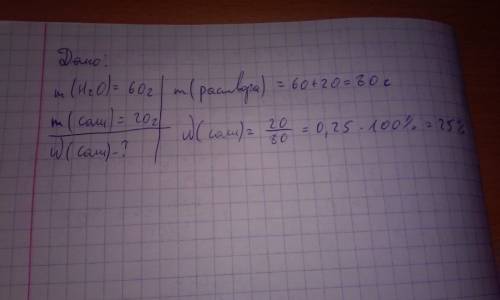 Дано:
m(H2O) = 60г
m(соли) = 20г
W(соли) - ?
m(раствора) = 60+20 = 80г
W(соли) = 20/80 = 0,25 · 100% = 25%